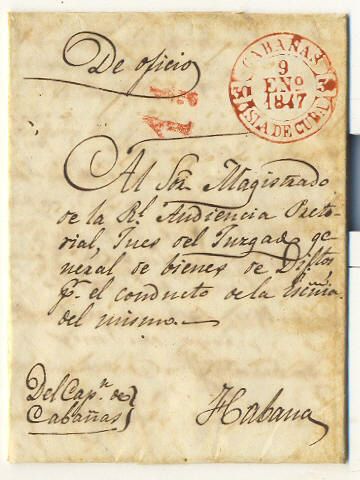 De oficio
CABAÑAS
9
ENº
1847
ISLA DE CUBA
3 3
Al Sor. Magistrado
de la Rl. Audiencia Preto-
rial, Jues del Juzgado ge-
neral de bienes de Diftos
pr. el conducto de la Escnia
del mismo.
Del Capn. de
Cabañas
Habana